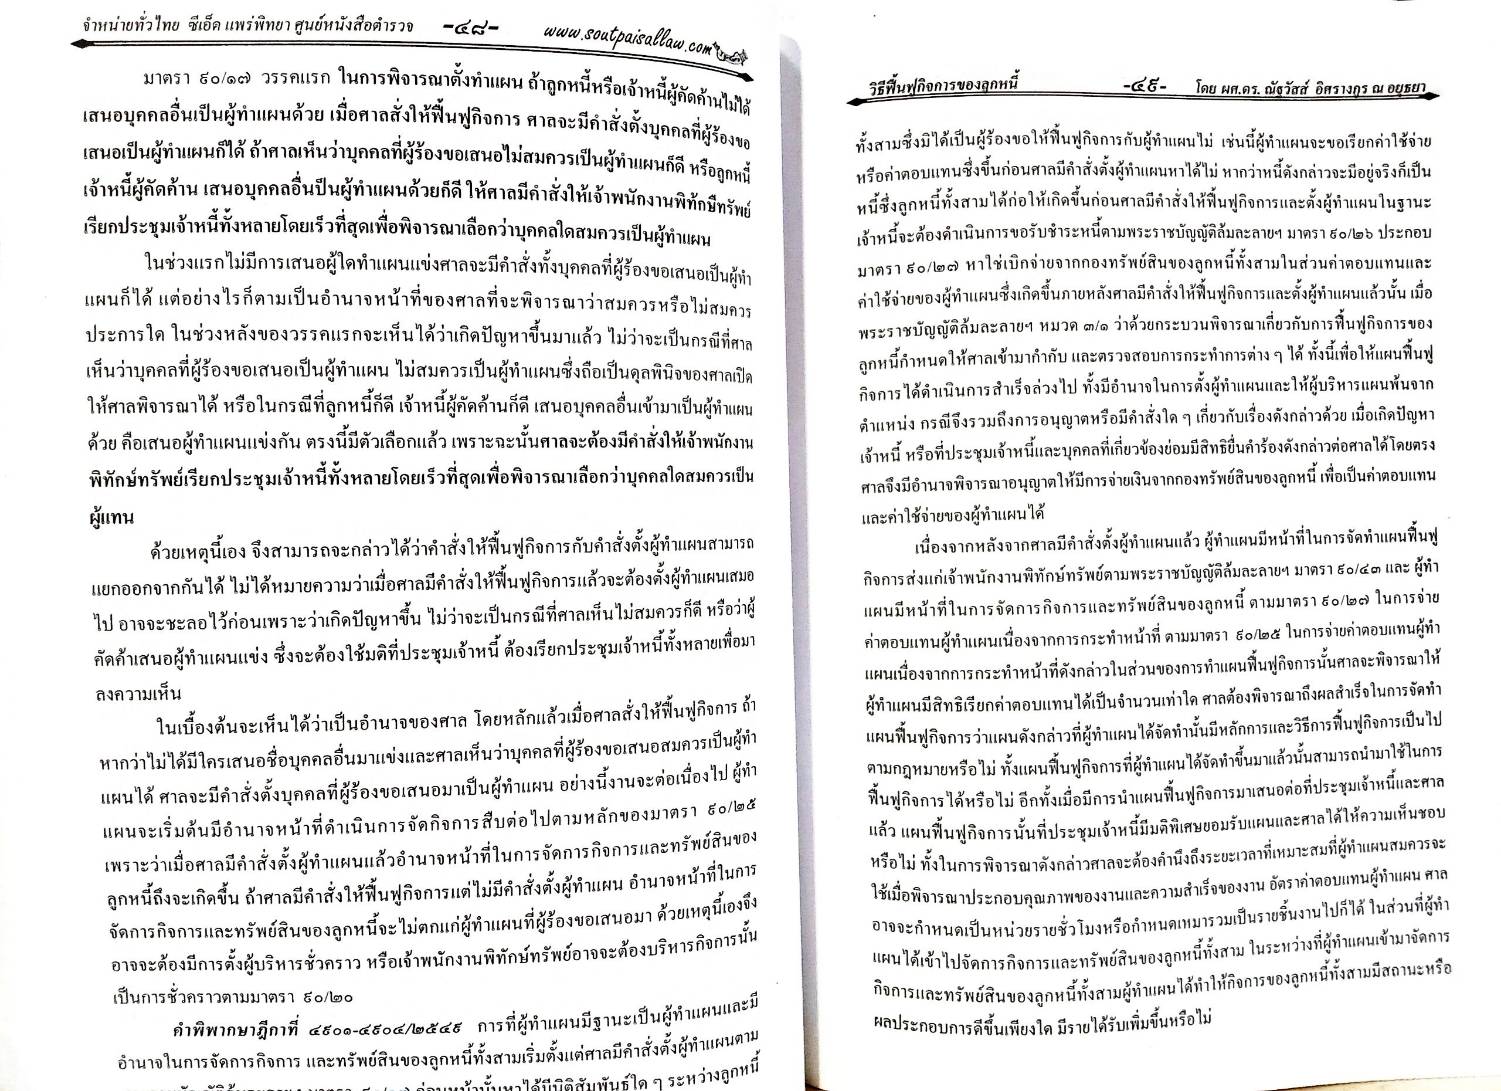 จำหน่ายทั่วไทย ซีเอ็ด แพร่พิทยา ศูนย์หนังสือตำรวจ -๔๘- www.soutpaisallaw.com
มาตรา ๙๐/๑๗ วรรคแรก ในการพิจารณาตั้งทำแผน ถ้าลูกหนี้หรือเจ้าหนี้ผู้คัดค้านไม่ได้
เสนอบุคคลอื่นเป็นผู้ทำแผนด้วย เมื่อศาลสั่งให้ฟื้นฟูกิจการ ศาลจะมีคำสั่งตั้งบุคคลที่ผู้ร้องขอ
เสนอเป็นผู้ทำแผนก็ได้ ถ้าศาลเห็นว่าบุคคลที่ผู้ร้องขอเสนอไม่สมควรเป็นผู้ทำแผนก็ดี หรือลูกหนี้
เจ้าหนี้ผู้คัดค้าน เสนอบุคคลอื่นป็นผู้ทำแผนด้วยก็ดี ให้ศาลมีคำสั่งให้เจ้าพนักงานพิทักษ์ทรัพย์
เรียกประชุมเจ้าหนี้ทั้งหลายโดยเร็วที่สุดเพื่อพิจารณาเลือกว่าบุคคลใดสมควรเป็นผู้ทำแผน
ในช่วงแรกไม่มีการเสนอผู้ใดทำแผนแข่งศาลจะมีคำสั่งทั้งบุคคลที่ผู้ร้องขอเสนอเป็นผู้ทำ
แผนก็ได้ แต่อย่างไรก็ตามเป็นอำนาจหน้าที่ของศาลที่จะพิจารณาว่าสมควรหรือไม่สมควร
ประการใด ในช่วงหลังของวรรคแรกจะเห็นได้ว่าเกิดปัญหาขึ้นมาแล้ว ไม่ว่าจะเป็นกรณีที่ศาล
เห็นว่าบุคคลที่ผู้ร้องขอเสนอเป็นผู้ทำแผน ไม่สมควรเป็นผู้ทำแผนซึ่งถือเป็นดุลพินิจของศาลเปิด
ให้ศาลพิจารณาได้ หรือในกรณีที่ลูกหนี้ก็ดี เจ้าหนี้ผู้คัดค้านก็ดี เสนอบุคคลอื่นเข้ามาเป็นผู้ทำแผน
ด้วย คือเสนอผู้ทำแผนแข่งกัน ตรงนี้มีตัวเลือกแล้ว เพราะฉะนั้นศาลจะต้องมีคำสั่งให้เจ้าพนักงาน
พิทักษ์ทรัพย์เรียกประชุมเจ้าหนี้ทั้งหลายโดยเร็วที่สุดเพื่อพิจารณาเลือกว่าบุคคลใดสมควรเป็น
ผู้แทน
ด้วยเหตุนี้เอง จึงสามารถจะกล่าวได้ว่าคำสั่งให้ฟื้นฟูกิจการกับคำสั่งตั้งผู้ทำแผนสามารถ
แยกออกจากกันได้ ไม่ได้หมายความว่าเมื่อศาลมีคำสั่งให้ฟื้นฟูกิจการแล้วจะต้องตั้งผู้ทำแผนเสมอ
ไป อาจจะชะลอไว้ก่อนเพราะว่าเกิดปัญหาขึ้น ไม่ว่าจะเป็นกรณีที่ศาลเห็นไม่สมควรก็ดี หรือว่าผู้
คัดค้าเสนอผู้ทำแผนแข่ง ซึ่งจะต้องใช้มติที่ประชุมเจ้าหนี้ ต้องเรียกประชุมเจ้าหนี้ทั้งหลายเพื่อมา
ลงความเห็น
ในเบื้องต้นจะเห็นได้ว่าเป็นอำนาจของศาล โดยหลักแล้วเมื่อศาลสั่งให้ฟื้นฟูกิจการ ถ้า
หากว่าไม่ได้มีใครเสนอชื่อบุคคลอื่นมาแข่งและศาลเห็นว่าบุคคลที่ผู้ร้องขอเสนอสมควรเป็นผู้ทำ
แผนได้ ศาลจะมีคำสั่งตั้งบุคคลที่ผู้ร้องขอเสนอมาเป็นผู้ทำแผน อย่างนี้งานจะต่อเนื่องไป ผู้ทำ
แผนจะเริ่มต้นมีอำนาจหน้าที่ดำเนินการจัดกิจการสืบต่อไปตามหลักของมาตรา ๙๐/๒๕
เพราะว่าเมื่อศาลมีคำสั่งตั้งผู้ทำแผนแล้วอำนาจหน้าที่ในการจัดการกิจการและทรัพย์สินของ
ลูกหนี้ถึงจะเกิดขึ้น ถ้าศาลมีคำสั่งให้ฟื้นฟูกิจการแต่ไม่มีคำสั่งตั้งผู้ทำแผน อำนาจหน้าที่ในการ
จัดการกิจการและทรัพย์สินของลูกหนี้จะไม่ตกแก่ผู้ทำแผนที่ผู้ร้องขอเสนอมา ด้วยเหตุนี้เองจึง
อาจจะต้องมีการตั้งผู้บริหารชั่วคราว หรือเจ้าพนักงานพิทักษ์ทรัพย์อาจจะต้องบริหารกิจการนั้น
เป็นการชั่วคราวตามมาตรา ๙๐/๒๐
คำพิพากษาฎีกาที่ ๔๙๐๑-๔๙๐๔/๒๕๔๙ การที่ผู้ทำแผนมีฐานะเป็นผู้ทำแผนและมี
อำนาจในการจัดการกิจการ และทรัพย์สินของลูกหนี้ทั้งสามเริ่มตั้งแต่ศาลมีคำสั่งตั้งผู้ทำแผนตาม
ก่อนหน้านั้นหาได้มีนิติสัมพันธ์ใด ๆ ระหว่างลูกหนี้
วิธีฟื้นฟูกิจการของลูกหนี้ -๔๙- โดย ผศ.ดร. ณัฐวัสส์ อิศรางกูร ณ อยุธยา
ทั้งสามซึ่งมิได้เป็นผู้ร้องขอให้ฟื้นฟูกิจการกับผู้ทำแผนไม่ เช่นนี้ผู้ทำแผนจะขอเรียกค่าใช้จ่าย
หรือค่าตอบแทนซึ่งขึ้นก่อนศาลมีคำสั่งตั้งผู้ทำแผนหาได้ไม่ หากว่าหนี้ดังกล่าวจะมีอยู่จริงก็เป็น
หนี้ซึ่งลูกหนี้ทั้งสามได้ก่อให้เกิดขึ้นก่อนศาลมีคำสั่งให้ฟื้นฟูกิจการและตั้งผู้ทำแผนในฐานะ
เจ้าหนี้จะต้องดำเนินการขอรับชำระหนี้ตามพระราชบัญญัติล้มละลายฯ มาตรา ๙๐/๒๖ ประกอบ
มาตรา ๙๐/๒๗ หาใช่เบิกจ่ายจากกองทรัพย์สินของลูกหนี้ทั้งสามในส่วนค่าตอบแทนและ
ค่าใช้จ่ายของผู้ทำแผนซึ่งเกิดขึ้นภายหลังศาลมีคำสั่งให้ฟื้นฟูกิจการและตั้งผู้ทำแผนแล้วนั้น เมื่อ
พระราชบัญญัติล้มละลายฯ หมวด ๓/๑ ว่าด้วยกระบวนพิจารณาเกี่ยวกับการฟื้นฟูกิจการของ
ลูกหนี้กำหนดให้ศาลเข้ามากำกับ และตรวจสอบการกระทำการต่าง ๆ ได้ ทั้งนี้เพื่อให้แผนฟื้นฟู
กิจการได้ดำเนินการสำเร็จล่วงไป ทั้งมีอำนาจในการตั้งผู้ทำแผนและให้ผู้บริหารแผนพ้นจาก
ตำแหน่ง กรณีจึงรวมถึงการอนุญาตหรือมีคำสั่งใด ๆ เกี่ยวกับเรื่องดังกล่าวด้วย เมื่อเกิดปัญหา
เจ้าหนี้ หรือที่ประชุมเจ้าหนี้และบุคคลที่เกี่ยวข้องย่อมมีสิทธิยื่นคำร้องดังกล่าวต่อศาลได้โดยตรง
ศาลจึงมีอำนาจพิจารณาอนุญาตให้มีการจ่ายเงินจากกองทรัพย์สินของลูกหนี้ เพื่อเป็นค่าตอบแทน
และค่าใช้จ่ายของผู้ทำแผนได้
เนื่องจากหลังจากศาลมีคำสั่งตั้งผู้ทำแผนแล้ว ผู้ทำแผนมีหน้าที่ในการจัดทำแผนฟื้นฟู
กิจการส่งแก่เจ้าพนักงานพิทักษ์ทรัพย์ตามพระราชบัญญัติล้มละลายฯ มาตรา ๙๐/๔๓ และ ผู้ทำ
แผนมีหน้าที่ในการจัดการกิจการและทรัพย์สินของลูกหนี้ ตามมาตรา ๙๐/๒๗ ในการจ่าย
ค่าตอบแทนผู้ทำแผนเนื่องจากการกระทำหน้าที่ ตามมาตรา ๙๐/๒๕ ในการจ่ายค่าตอบแทนผู้ทำ
แผนเนื่องจากการกระทำหน้าที่ดังกล่าวในส่วนของการทำแผนฟื้นฟูกิจการนั้นศาลจะพิจารณาให้
ผู้ทำแผนมีสิทธิเรียกค่าตอบแทนได้เป็นจำนวนเท่าใด ศาลต้องพิจารณาถึงผลสำเร็จในการจัดทำ
แผนฟื้นฟูกิจการว่าแผนดังกล่าวที่ผู้ทำแผนได้จัดทำนั้นมีหลักการและวิธีการฟื้นฟูกิจการเป็นไป
ตามกฎหมายหรือไม่ ทั้งแผนฟื้นฟูกิจการที่ผู้ทำแผนได้จัดทำขึ้นมาแล้วนั้นสามารถนำมาใช้ในการ
ฟื้นฟูกิจการได้หรือไม่ อีกทั้งเมื่อมีการนำแผนฟื้นฟูกิจการมาเสนอต่อที่ประชุมเจ้าหนี้และศาล
แล้ว แผนฟื้นฟูกิจการนั้นที่ประชุมเจ้าหนี้มีมติพิเศษยอมรับแผนและศาลได้ให้ความเห็นชอบ
หรือไม่ ทั้งในการพิจารณาดังกล่าวศาลจะต้องคำนึงถึงระยะเวลาที่เหมาะสมที่ผู้ทำแผนสมควรจะ
ใช้เมื่อพิจารณาประกอบคุณภาพของงานและความสำเร็จของงาน อัตราค่าตอบแทนผู้ทำแผน ศาล
อาจจะกำหนดเป็นหน่วยรายชั่วโมงหรือกำหนดเหมารวมเป็นรายชิ้นงานไปก็ได้ ในส่วนที่ผู้ทำ
แผนได้เข้าไปจัดการกิจการและทรัพย์สินของลูกหนี้ทั้งสาม ในระหว่างที่ผู้ทำแผนเข้ามาจัดการ
กิจการและทรัพย์สินของลูกหนี้ทั้งสามผู้ทำแผนได้ทำให้กิจการของลูกหนี้ทั้งสามมีสถานะหรือ
ผลประกอบการดีขึ้นเพียงใด มีรายได้รับเพิ่มขึ้นหรือไม่